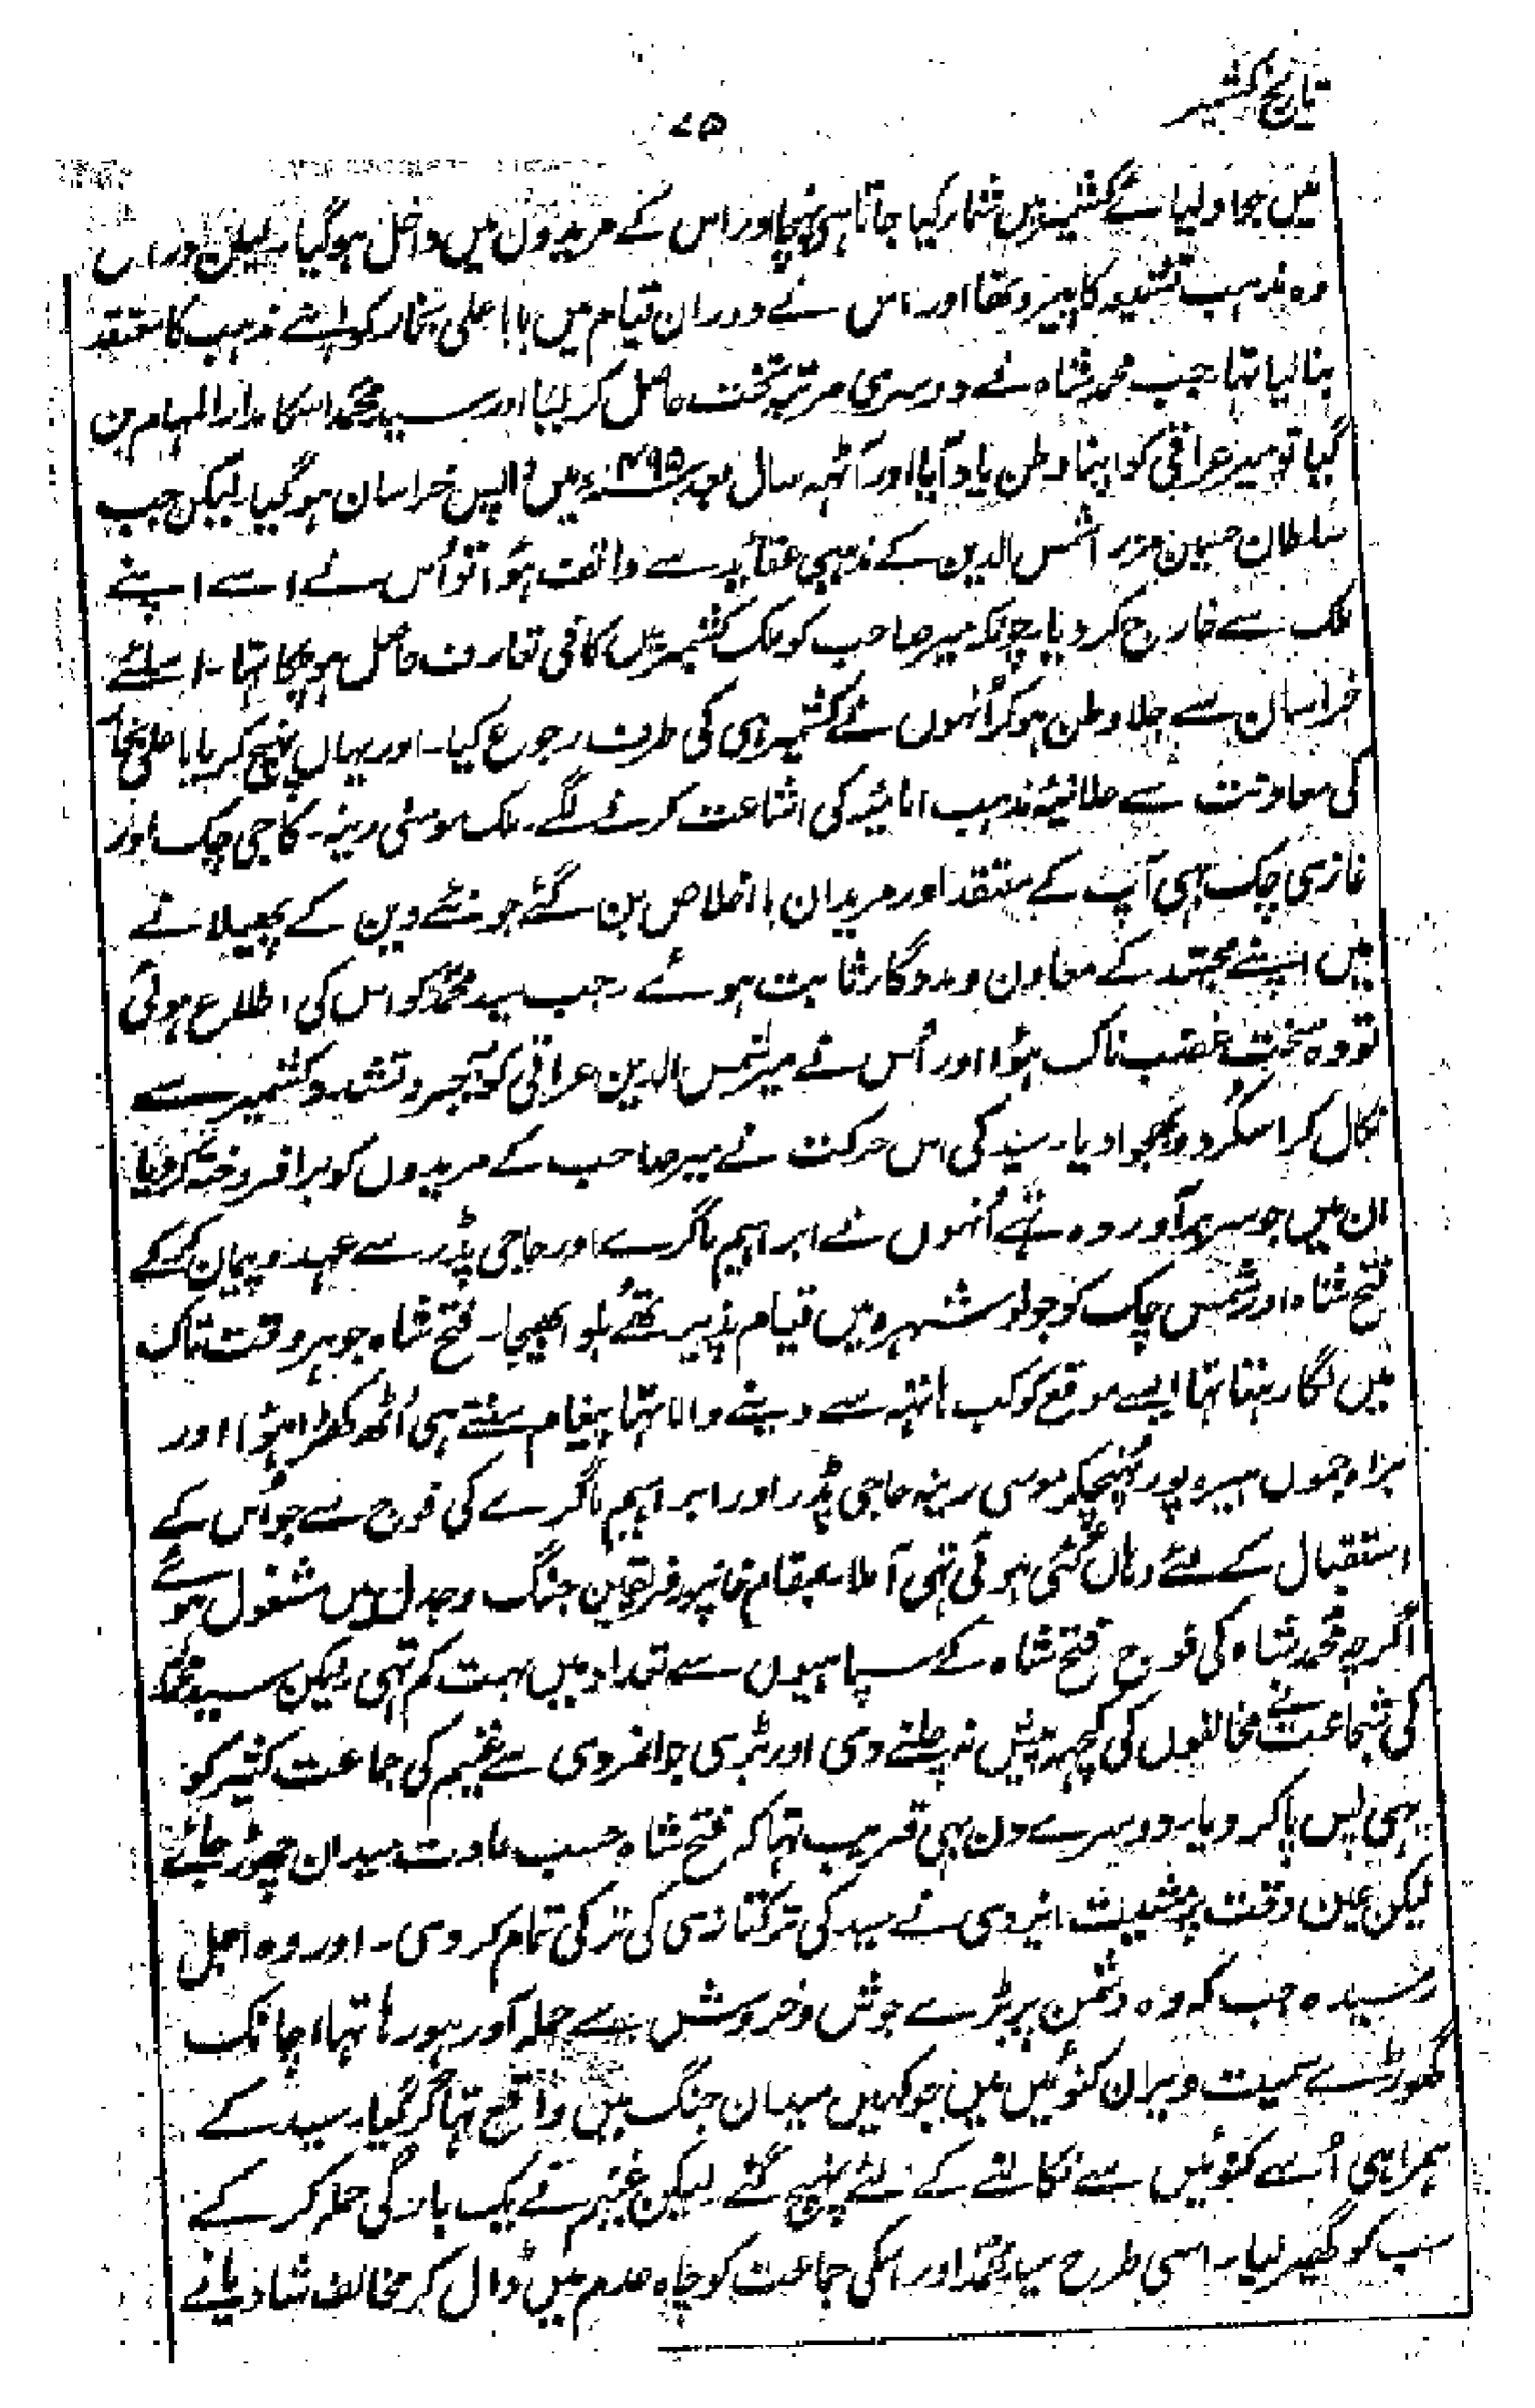 تاریخ کشمیر
۷۵
میں جو اولیائے کشمیر میں شمار کیا جاتا ہی پہنچا اور اس کے مریدوں میں داخل ہو گیا۔ لیکن دراصل
وہ مذہب تشیّع کا پیرو تھا اور اس نے دوران قیام میں بابا علی نجار کو اپنے مذہب کا معتقد
بنا لیا تہا۔ جب محمد شاہ نے دوسری مرتبہ تخت حاصل کر لیا اور سید محمد اسکا مدارالمہام بن
گیا تو میر عراقی کو اپنا وطن یاد آیا اور آٹہہ سال بعد میں واپس خراسان ہو گیا۔ لیکن جب
سلطان حسین مرزا شمس الدین کے مذہبی عقاید سے واقف ہؤا تو اُس نے اسے اپنے
ملک سے خارج کر دیا۔ چونکہ میر صاحب کو ملک کشمیر میں کافی تعارف حاصل ہو چکا تہا۔ اسلئے
خراسان سے جلا وطن ہو کر اُنہوں نے کشمیر ہی کی طرف رجوع کیا۔ اور یہاں پہنچ کر بابا علی نجار
کی معاونت سے علانیہ مذہب امامیہ کی اشاعت کرنے لگے۔ ملک موسٰی رینہ۔ کاجی چک اور
غازی چک بہی آپ کے معتقد اور مریدان با اخلاص بن گئے جو نئے دین کے پھیلانے
میں اپنے مجتہد کے معاون و مددگار ثابت ہوئے۔ جب سید محمد کو اس کی اطلاع ہوئی
تو وہ سخت غضب ناک ہؤا اور اُس نے میر شمس الدین عراقی کو بجبر و تشدد کشمیر سے
نکال کر اسکردو بھجوا دیا۔ سید کی اس حرکت نے میر صاحب کے مریدوں کو برافروختہ کر دیا
ان میں جو سربرآوردہ تہے اُنہوں نے ابراہیم ماگرے اور حاجی پڈر سے عہد و پیمان کر کے
فتح شاہ اور شمس چک کو جو نوشہرہ میں قیام پذیر تھے بلوا بھیجا۔ فتح شاہ جو ہر وقت تاک
میں لگا رہتا تہا ایسے موقع کو کب ہاتہہ سے دینے والا تہا پیغام سنتے ہی اُٹھ کھڑا ہؤا اور
براہ جموں ہیرہ پور پُہنچکر موسی رینہ حاجی پڈر اور ابراہیم ماگرے کی فوج سے جو اُس کے
استقبال کے لئے وہاں گئی ہوئی تہی آ ملا۔ بمقام خانپور فریقین جنگ و جدل میں مشغول ہو گئے
اگرچہ محمد شاہ کی فوج فتح شاہ کے سپاہیوں سے تعداد میں بہت کم تہی لیکن سید محمد
کی شجاعت نے مخالفوں کی کچہہ پیش نہ چلنے دی اور بڑی جوانمردی سے غنیم کی جماعت کثیر کو
بہی پس پا کر دیا۔ دوسرے دن بہی قریب تہا کہ فتح شاہ حسب عادت میدان چہوڑ جائے
لیکن عین وقت پر مشیت ایزدی نے سید کی ترکتازی کی ترکی تمام کر دی۔ اور وہ اجل
رسیدہ جب کہ وہ دشمن پر بڑے جوش و خروش سے حملہ آور ہو رہا تہا۔ اچانک
گھوڑے سمیت ویران کنوئیں میں جو کہیں میدان جنگ میں واقع تہا گر گیا۔ سید کے
ہمراہی اُسے کنوئیں سے نکالنے کے لئے پہنچ گئے۔ لیکن غنیم نے یک بارگی حملہ کر کے
سب کو گھیر لیا۔ اسی طرح سید محمد اور اسکی جماعت کو چاہ عدم میں ڈال کر مخالف شادیانے